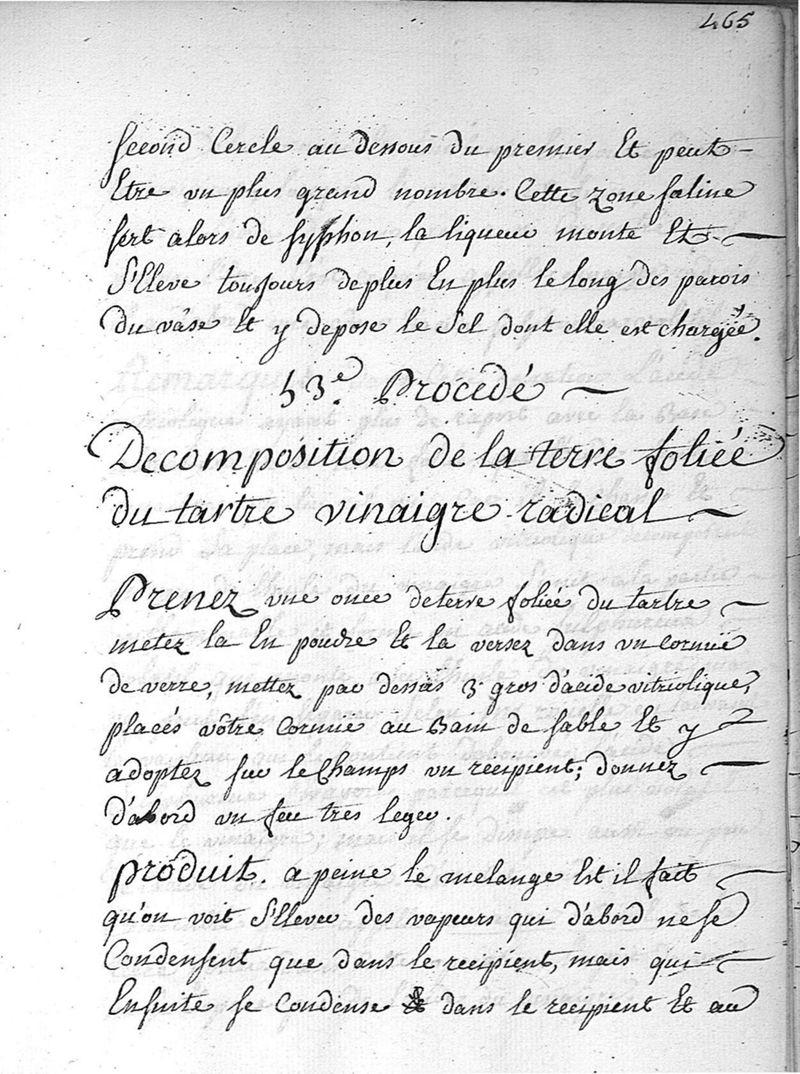 465
second Cercle au dessous du premier Et peut-
Etre un plus grand nombre. Cette zone saline
sert alors de syphon, la liqueur monte Et
S'Eleve tousjours de plus En plus le long des parois
du vâse Et y depose le sel dont elle est chargée.
53.e Procedé
Decomposition de la terre foliée
du tartre vinaigre radical
Prenez une once de terre foliée du tartre
metez la En poudre Et la versez dans un cornuë
de verre, mettez par dessus 3 gros d'acide vitriolique,
placés vôtre Cornue au Bain de sable Et y
adoptez sur le Champs un recipient; donnez
d'abord un feu tres leger.
produit. a peine le melange Est il fait
qu'on voit S'Elever des vapeurs qui d'abord ne se
Condensent que dans le recipient, mais qui
Ensuite se Condense dans le recipient Et au